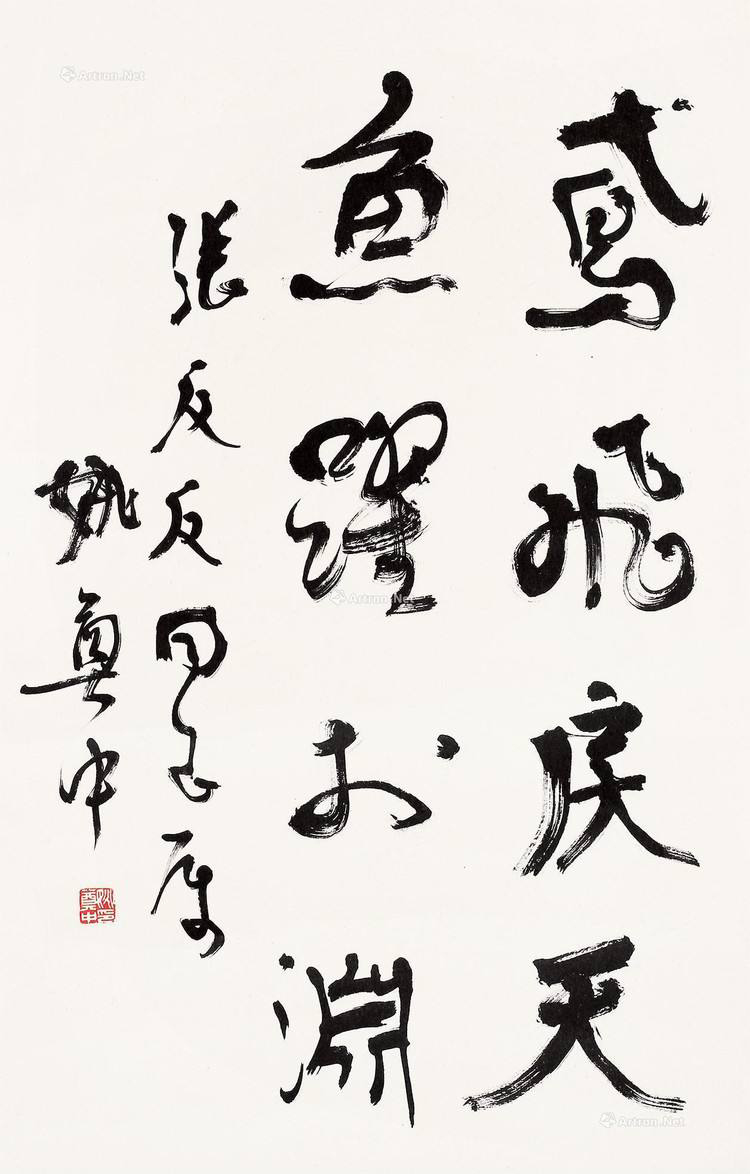 鳶飛戾天
魚躍於淵
張反反同志属
姚奠中
姚印奠中
Artron.Net
Artron.Net
Artron.Net